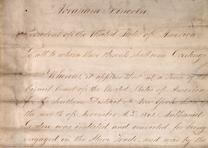 Abraham Lincoln,
President of the United States of America
To all to whom these Presents shall come Greeting
Whereas, it appears that at a Term of
Circuit Court of the United States of America
for the Southern District of New York
the month of November A.D. 1861, Nathaniel
Gordon was indicted and convicted for being
engaged in the Slave Trade, and was by the